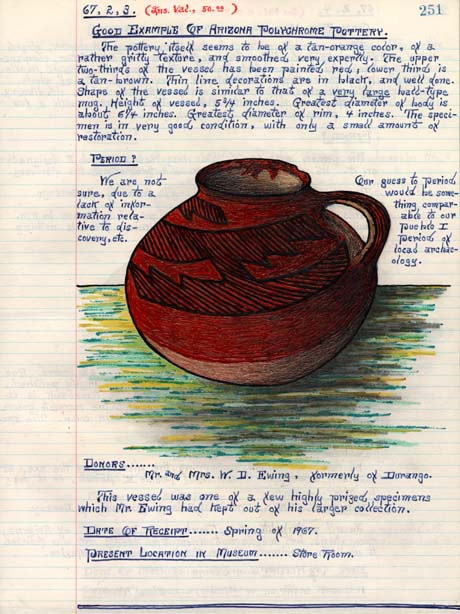 67, 2, 3. (Ins. Val., 50.00) 251
Good Example Of Arizona Polychrome Pottery.
The pottery itself seems to be of a tan-orange color, of a
rather gritty texture, and smoothed very expertly. The upper
two-thirds of the vessel has been painted red; lower third is
a tan-brown. Thin line decorations are in black, and well done.
Shape of the vessel is similar to that of a very large ball-type
mug. Height of vessel, 5 3/4 inches. Greatest diameter of body is
about 6 1/4 inches. Greatest diameter of rim, 4 inches. The speci-
men is in very good condition, with only a small amount of
restoration.
Period?
We are not
sure, due to a
lack of infor-
mation rela-
tive to dis-
covery, etc.
Our guess to period
would be some-
thing compar-
able to our
Pueblo I
Period of
local archae-
ology.
Donors......
Mr. and Mrs. W. D. Ewing, formerly of Durango.
This vessel was one of a few highly prized specimens
which Mr. Ewing had kept out of his larger collection.
Date Of Receipt...... Spring of 1967.
Present Location in Museum...... Store Room.